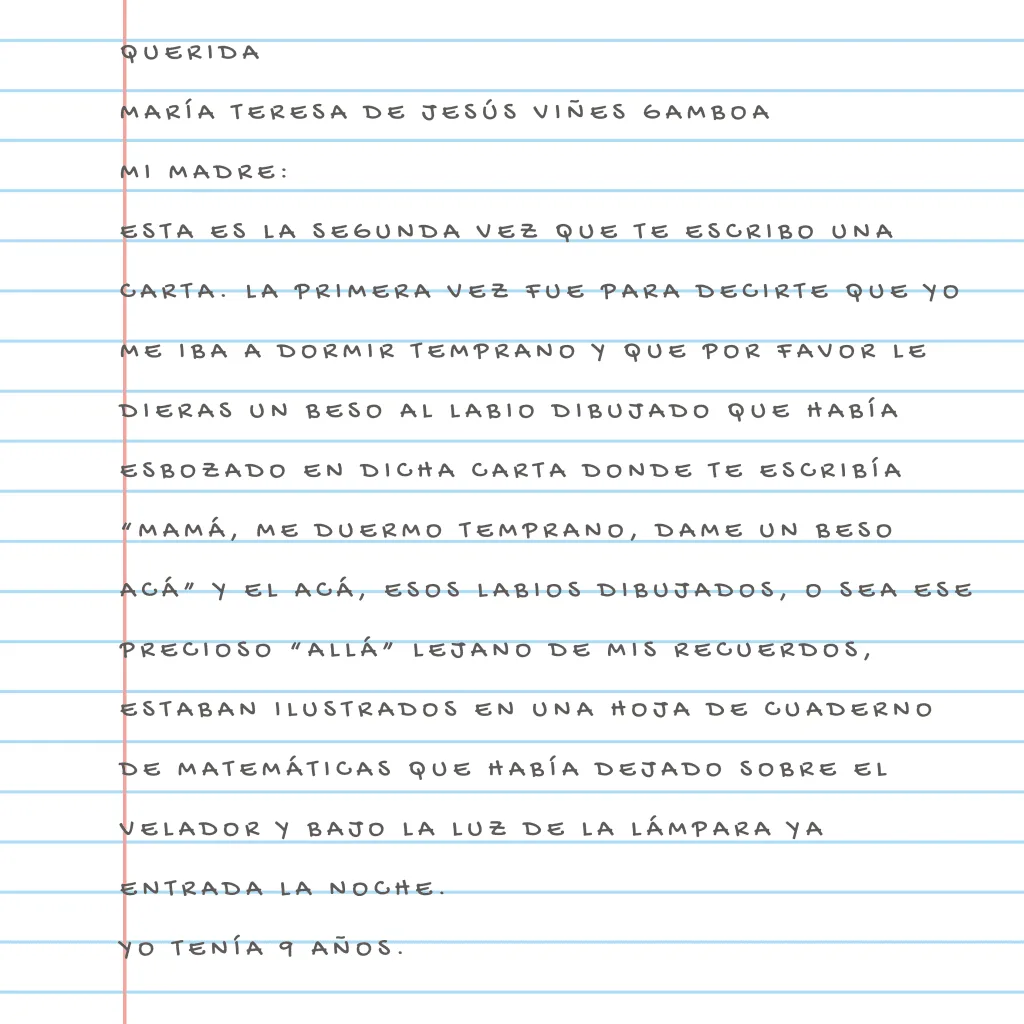 QUERIDA
MARÍA TERESA DE JESÚS VIÑES GAMBOA
MI MADRE:
ESTA ES LA SEGUNDA VEZ QUE TE ESCRIBO UNA
CARTA. LA PRIMERA VEZ FUE PARA DECIRTE QUE YO
ME IBA A DORMIR TEMPRANO Y QUE POR FAVOR LE
DIERAS UN BESO AL LABIO DIBUJADO QUE HABÍA
ESBOZADO EN DICHA CARTA DONDE TE ESCRIBÍA
"MAMÁ, ME DUERMO TEMPRANO, DAME UN BESO
ACÁ" Y EL ACÁ, ESOS LABIOS DIBUJADOS, O SEA ESE
PRECIOSO "ALLÁ" LEJANO DE MIS RECUERDOS,
ESTABAN ILUSTRADOS EN UNA HOJA DE CUADERNO
DE MATEMÁTICAS QUE HABÍA DEJADO SOBRE EL
VELADOR Y BAJO LA LUZ DE LA LÁMPARA YA
ENTRADA LA NOCHE.
YO TENÍA 9 AÑOS.